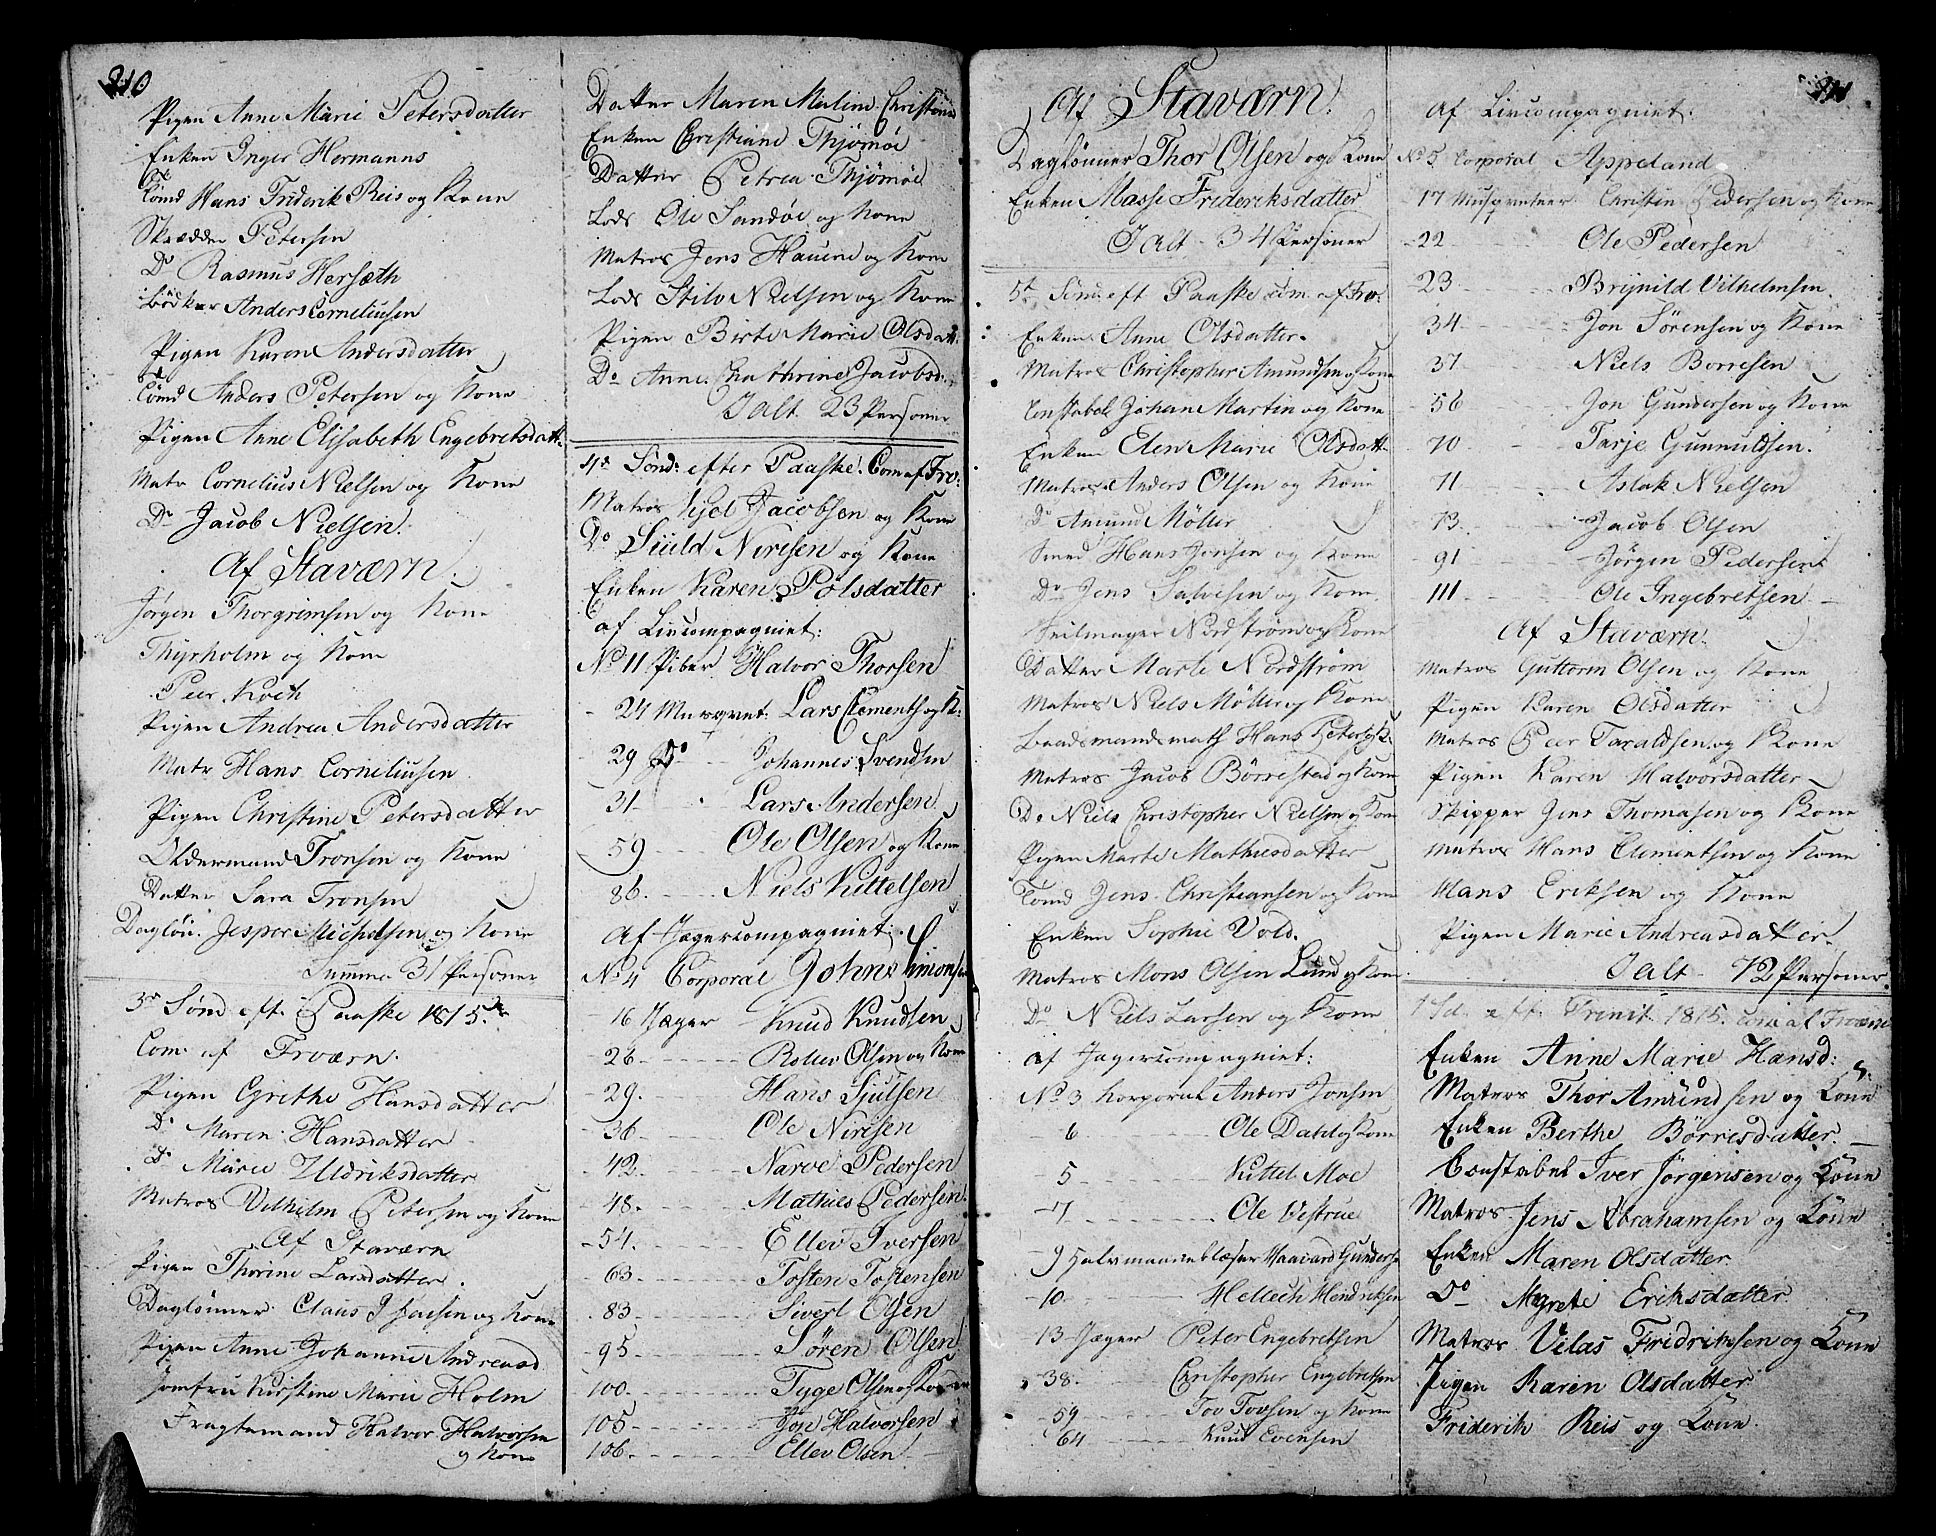 210
Pigen Anne Marie Petersdatter
Enken Inger Hermanns
Tømd Hans Friderik Reis og Kone
Skrædder Petersen
Do Rasmus Hersæth
Bødker Anders Corneliusen
Pigen Karen Andersdatter
Tømd Anders Petersen og Kone
Pigen Anne Elisabeth Engebretsdatt:
Matr Cornelius Nielsen og Kone
Do Jacob Nielsen.
Af Staværn
Jørgen Thorgrimsen og Kone
Thyrholm og Kone
Peer Koch
Pigen Andrea Andersdatter
Matr Hans Corneliusen
Pigen Christine Petersdatter
Oldermand Tronsen og Kone
Datter Sara Tronsen
Dagløn: Jesper Michelsen og Kone
Summa 31 Personer
3die Sønd eft: Paaske 1815.
Com: af Frværn.
Pigen Grethe Hansdatter
Do Maren Hansdatter
Do Marie Uldriksdatter
Matros Vilhelm Petersen og Kone
Af Staværn
Pigen Thorine Larsdatter.
Daglønner Claus og Kone
Pigen Anne Johanne Andreasd
Jomfru Kirstine Marie Holm
Fragtemand Halvor Halvorsen
og Kone
Datter Maren Malene Christiane
Enken Christiane Thjømøe
Datter Petrea Thjømøe
Lods Ole Sandøe og Kone
Matros Jens Hauene og Kone
Lods Stilv Nielsen og Kone
Pigen Birte Marie Olsdatt:
Do Anne Chathrine Jacobsd:
Ialt 23 Personer
4de Sønd: efter Paaske. Com af Frv:
Matros Kjel Jacobsen og Kone
Do Siuld Nirisen og Kone
Enken Karen Polsdatter
af Livcompagniet:
No 11 Piber Halvor Thorsen
- 24 Musqvet: Lars Clements og K:
- 29 Do Johannes Svendsen
31 Lars Andersen
59 Ole Olsen og Kone
86. Niels Kittelsen
Af Jægercompagniet.
No 4 Corporal Johns Simonsen
- 16 Jæger Knud Knudsen
- 26 Rollev Olsen og Kone
- 29. Hans Sjulsen
- 36 Ole Nirisen
- 42. Narve Pedersen
- 48. Mathies Pedersen
- 54. Ellev Iversen
- 63 Tosten Tostensen
. 83 Siverl Olsen
- 95 Søren Olsen
100. Tyge Olsen og Kone
105 Jon Halvorsen
106. Ellev Olsen
Af Staværn.
Daglønner Thor Olsen og Kone
Enken Masse Frideriksdatter
Ialt - 34 Personer
5te Sønd. eft Paaske com. af Frv.
Enken Anne Olsdatter.
Matros Christopher Amundsen og Kone
Constabel Johan Martin og Kone
Enken Elen Marie Olsdatt
Matros Anders Olsen og Kone
Do Amund Möller
Smed Hans Jonsen og Kone
Do Jens Salvesen og Kone
Seilmager Nordstrøm og Kone
Datter Marte Nordstrøm
Matros Niels Möller og Kone
Baadsmandsmath Hans Peter og K:
Matros Jacob Börrestad og Kone
Do Niels Christopher Nielsen og Kone
Pigen Marte Mathiesdatter
Tømd Jens Christiansen og Kone
Enken Sophie Vold.
Matros Mons Olsen Lund og Kone
Do Niels Larsen og Kone
af Jægercompagniet:
No 3 Korporal Anders Jonsen
- 6 Ole Dahl og Kone
5 Kittel Moe
- 7 Ole Vestrue
- 9 Halvmaaneblæser Haavard Gunders
- 10 Hellech Hendriksen
- 13 Jæger Peter Engebretsen
- 38. Christopher Engebretsen
- 59 Tov Tovsen og Kone
- 64 Knud Evensen
Af Livcompagniet:
No 5 Corporal Appeland
17 Musqveteer Christen Pedersen og Kone
- 22 Ole Pedersen
- 23 Brynild Vilhelmsen.
- 34 Jon Sørensen og Kone
- 37 Niels Borresen
- 56 Jon Gundersen og Kone
- 70 Tarje Gunnuldsen.
- 71 Aslak Nielsen
- 73. Jacob Olsen
- 91 Jørgen Pedersen
- 111. Ole Ingebretsen
Af Staværn.
Matros Guttorm Olsen og Kone
Pigen Karen Olsdatter
Matros Peer Taraldsen og Kone
Pigen Karen Halvorsdatter
Skipper Jens Thomasen og Kone
Matros Hans Clementsen og Kone
Hans Eriksen og Kone
Pigen Marie Andreasdatter.
Ialt - 72 Personer.
1 Sd. eft: Trinit. 1815. Com af Frværn
Enken Anne Marie Hansd:
Matros Thor Amundsen og Kone
Enken Berthe Börresdatter.
Constabel Iver Jørgensen og Kone
Matros Jens Abrahamsen og Kone
Enken Maren Olsdatter
Do Mgrete Eriksdatter
Matros Vilas Fridriksen og Kone
Pigen Karen Olsdatter
Friderik Reis og Kone.